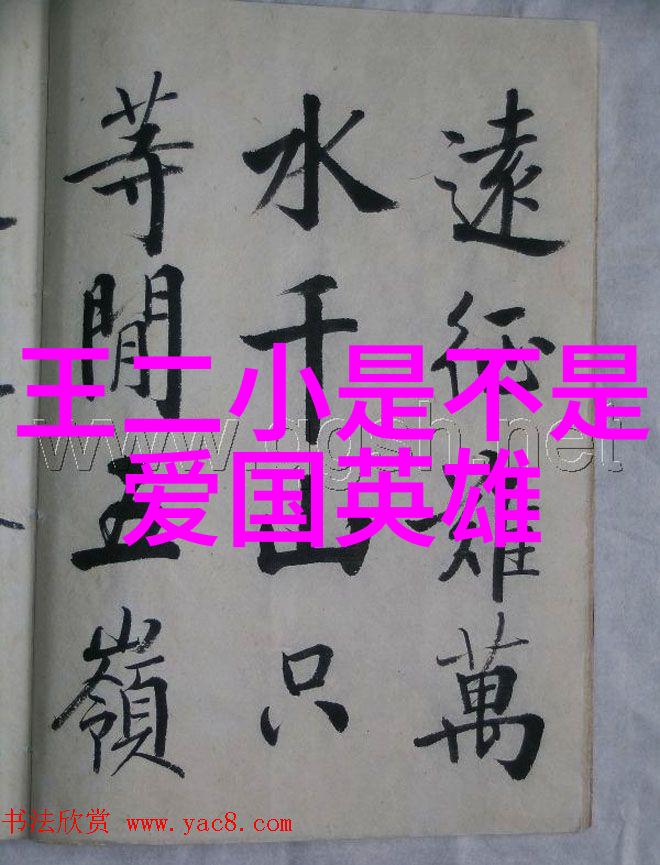 遠征難萬
水千山只
等閒五嶺
王二小是不是
爱国英雄
书法欣赏 www.yac8.com